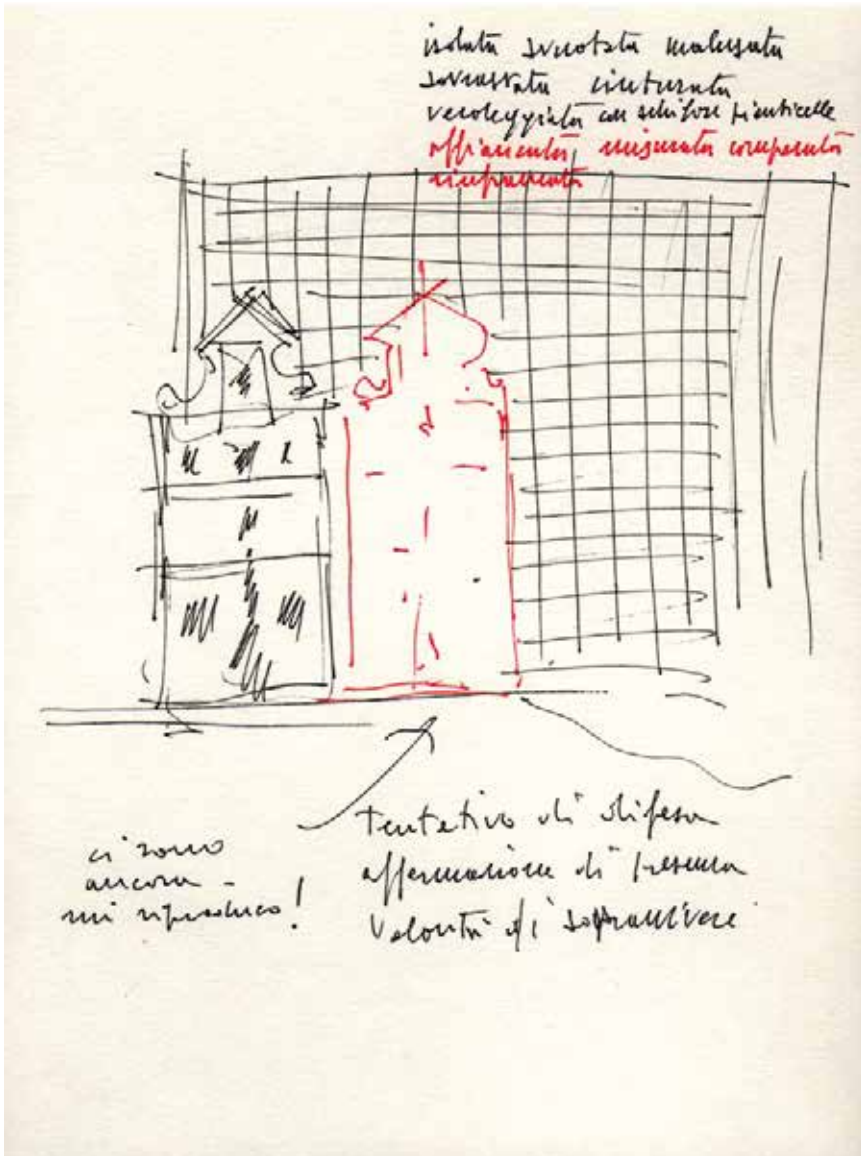 isolata svuotata malusata
sovrastata cinturata
verdeggiata con schifose pianticelle
affiancata, misurata comparata
ci sono
ancora -
mi riproduco!
tentativo di difesa
affermazione di presenza
volontà di sopravvivere